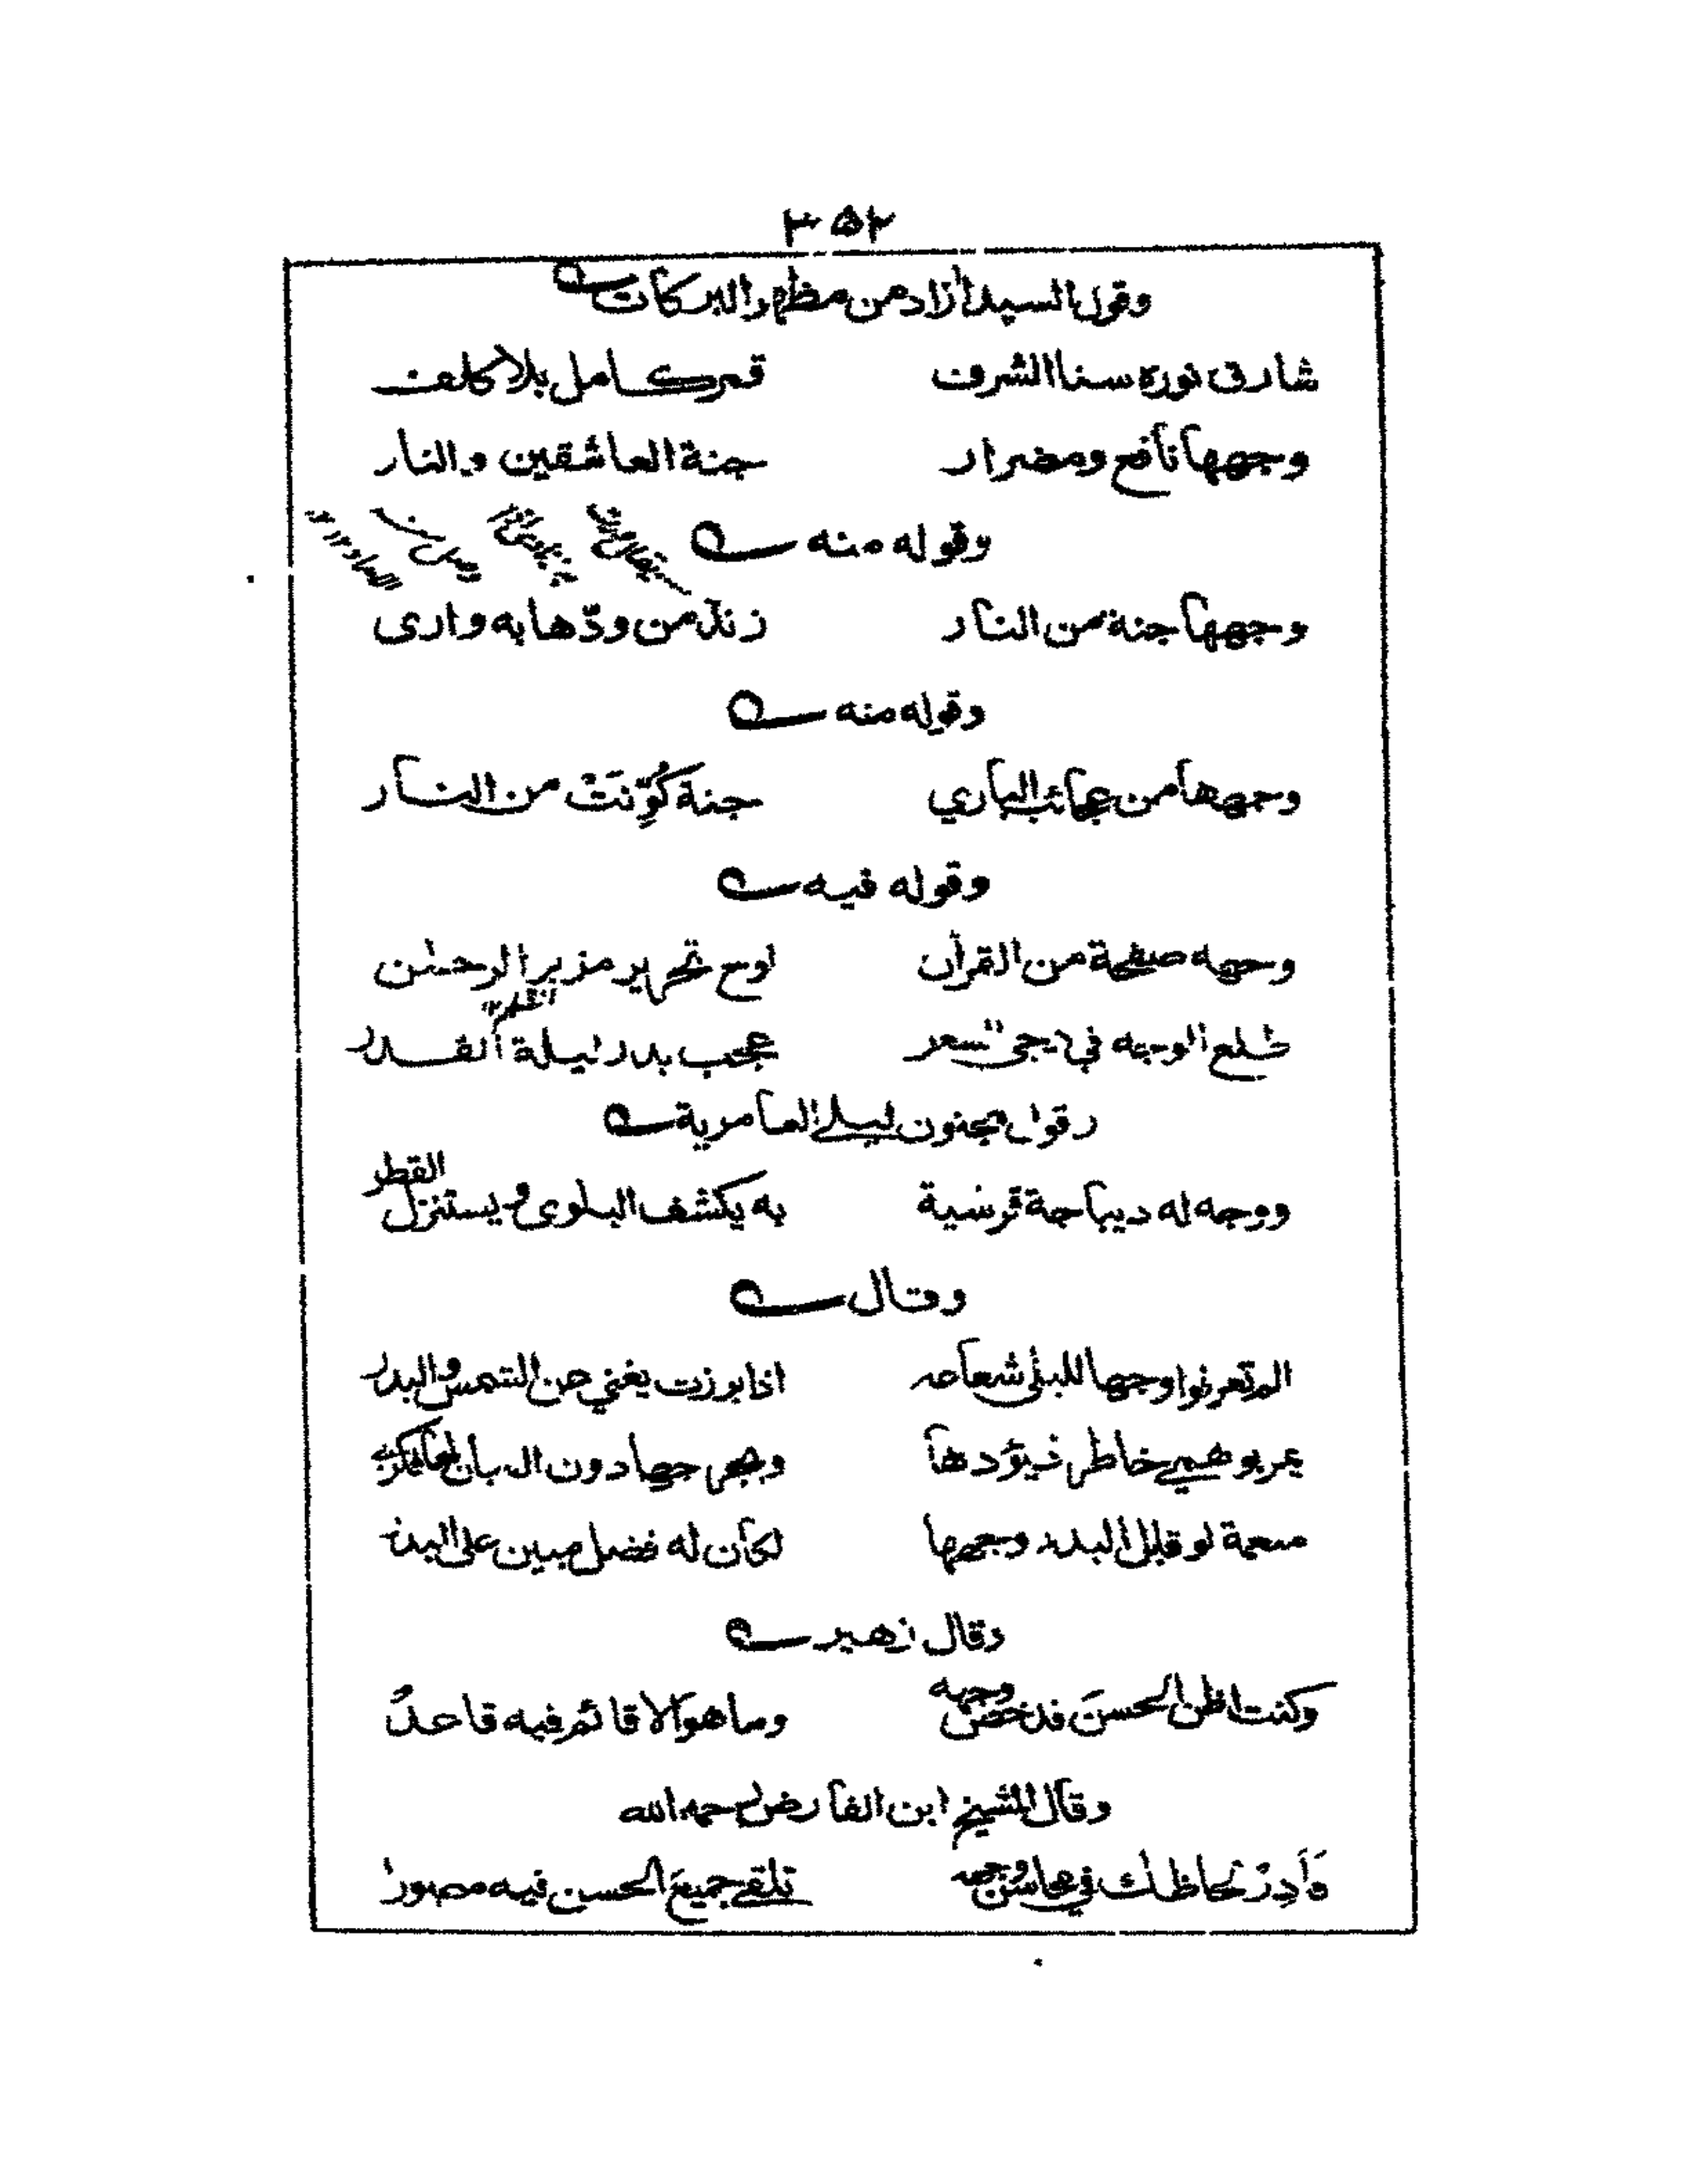 ٣٥٢
وقول السيد آزاد من مظهر البركات
شارق نوره سنا الشرف قمر كامل بلا كلف
وجهها نافع ومضرار جنة العاشقين والنار
وقوله منه
وجهها جنة من النار زند من ودّها به واری
وقوله منه
وجهها من عجائب الباري جنة كُوِّنَتْ من النار
وقوله فيه
وجهه صفحة من القرآن لوح تحرير مزبر الرحمٰن
طلع الوجه في دجى الشعر عجب بدر ليلة القدر
وقول مجنون ليلى العامرية
ووجه له ديباجة قرشية به يكشف البلوى ويستنزل القطر
وقال
الم تعرفوا وجها لليلى شعاعه اذا برزت يغني عن الشمس والبدر
يمر بوهمي خاطر فيؤدها
منعمة لو قابل البدر وجهها لكان له فضل مبين على البدر
وقال زهير
وكنت اظن الحسنَ قد خص وجهه وما هو الا قائم فيه قاعدُ
وقال الشيخ ابن الفارض رحمه الله
فَأَدِرْ لحاظك في محاسن وجهه تلقى جميعَ الحسن فيه مصورا